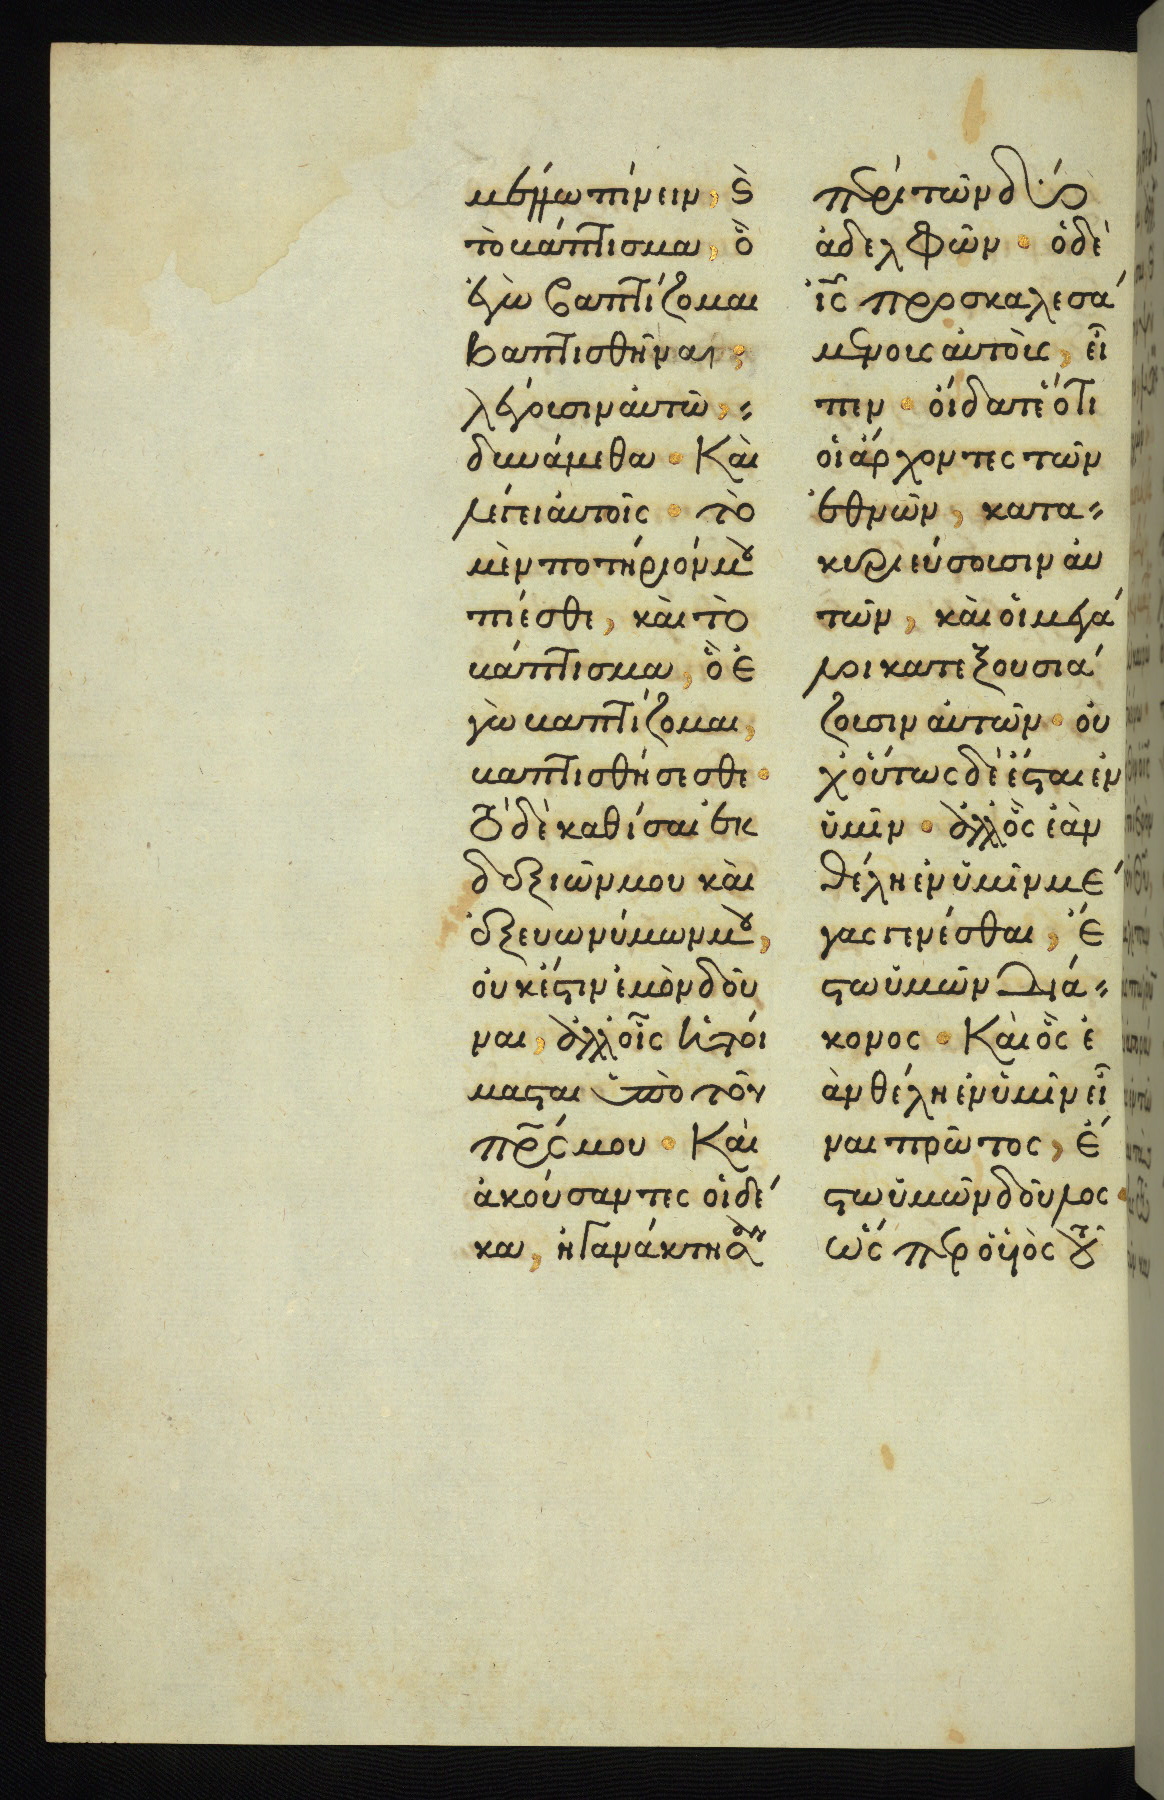 μέλλω πίνειν, ϗ
τὸ βάπτισμα, ὃ
ἐγὼ βαπτίζομαι
βαπτισθῆναι;
λέγουσιν αὐτῶ,
δυνάμεθα. Καὶ
λέγει αὐτοῖς. τὸ
μὲν ποτήριόν μου
πίεσθε, καὶ τὸ
βάπτισμα, ὃ ἐ
γὼ βαπτίζομαι,
βαπτισθήσεσθε.
Τὸ δὲ καθίσαι ἐκ
δεξιῶν μου καὶ
ἐξ εὐωνύμων μου,
οὐκ ἔστιν ἐμὸν δοῦ
ναι, ἀλλ' οἷς ἡτοί
μασται ὑπὸ τοῦ
πρς μου. Καὶ
ἀκούσαντες οἱ δέ
κα, ἠγανάκτησαν
περὶ τῶν δύο
ἀδελφῶν. ὁ δὲ
ις προσκαλεσά
μενος αὐτοὺς, εἶ
πεν. οἴδατε ὅτι
οἱ ἄρχοντες τῶν
ἐθνῶν, κατα
κυριεύουσιν αὐ
τῶν, καὶ οἱ μεγά
λοι κατεξουσιά
ζουσιν αὐτῶν. οὐ
χ οὕτως δὲ ἔσται ἐν
ὑμῖν. ἀλλ' ὃς ἐὰν
θέλη ἐν ὑμῖν μέ
γας γενέσθαι, ἔ
στω ὑμῶν διά
κονος. Καὶ ὃς ἐ
ὰν θέλη ἐν ὑμῖν εἶ
ναι πρῶτος, ἔ
στω ὑμῶν δοῦλος.
ὥσπερ ὁ υἱὸς τοῦ